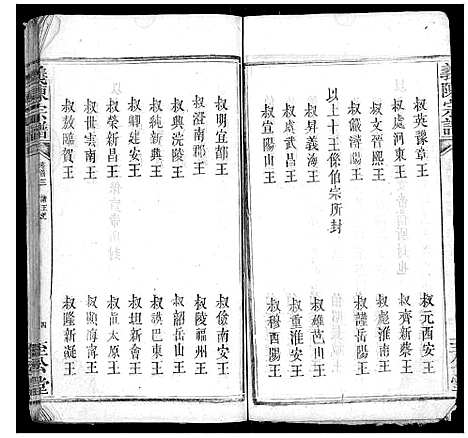 義陳宗譜
叔英豫章王
叔元西安王
叔處河東王
叔齊新蔡王
叔文晉熙王
叔彪淮南王
叔儼潯陽王
叔謹岳陽王
以上十王係伯宗所封
叔昇義漁王
叔蘿巴山王
叔虞武昌王
叔重淮安王
叔宣陽山王
叔穆西陽王
叔明宜都王
叔儉南安王
叔澄南郡王
叔陵福州王
叔興沅陵王
叔韶岳山王
叔純新興王
叔謨巴東王
叔卿建安王
叔坦新會王
叔榮新昌王
叔匡太原王
叔世雲南王
叔顯海南王
叔放臨賀王
叔隆新凝王
義陳宗譜
諸王
四
至公堂